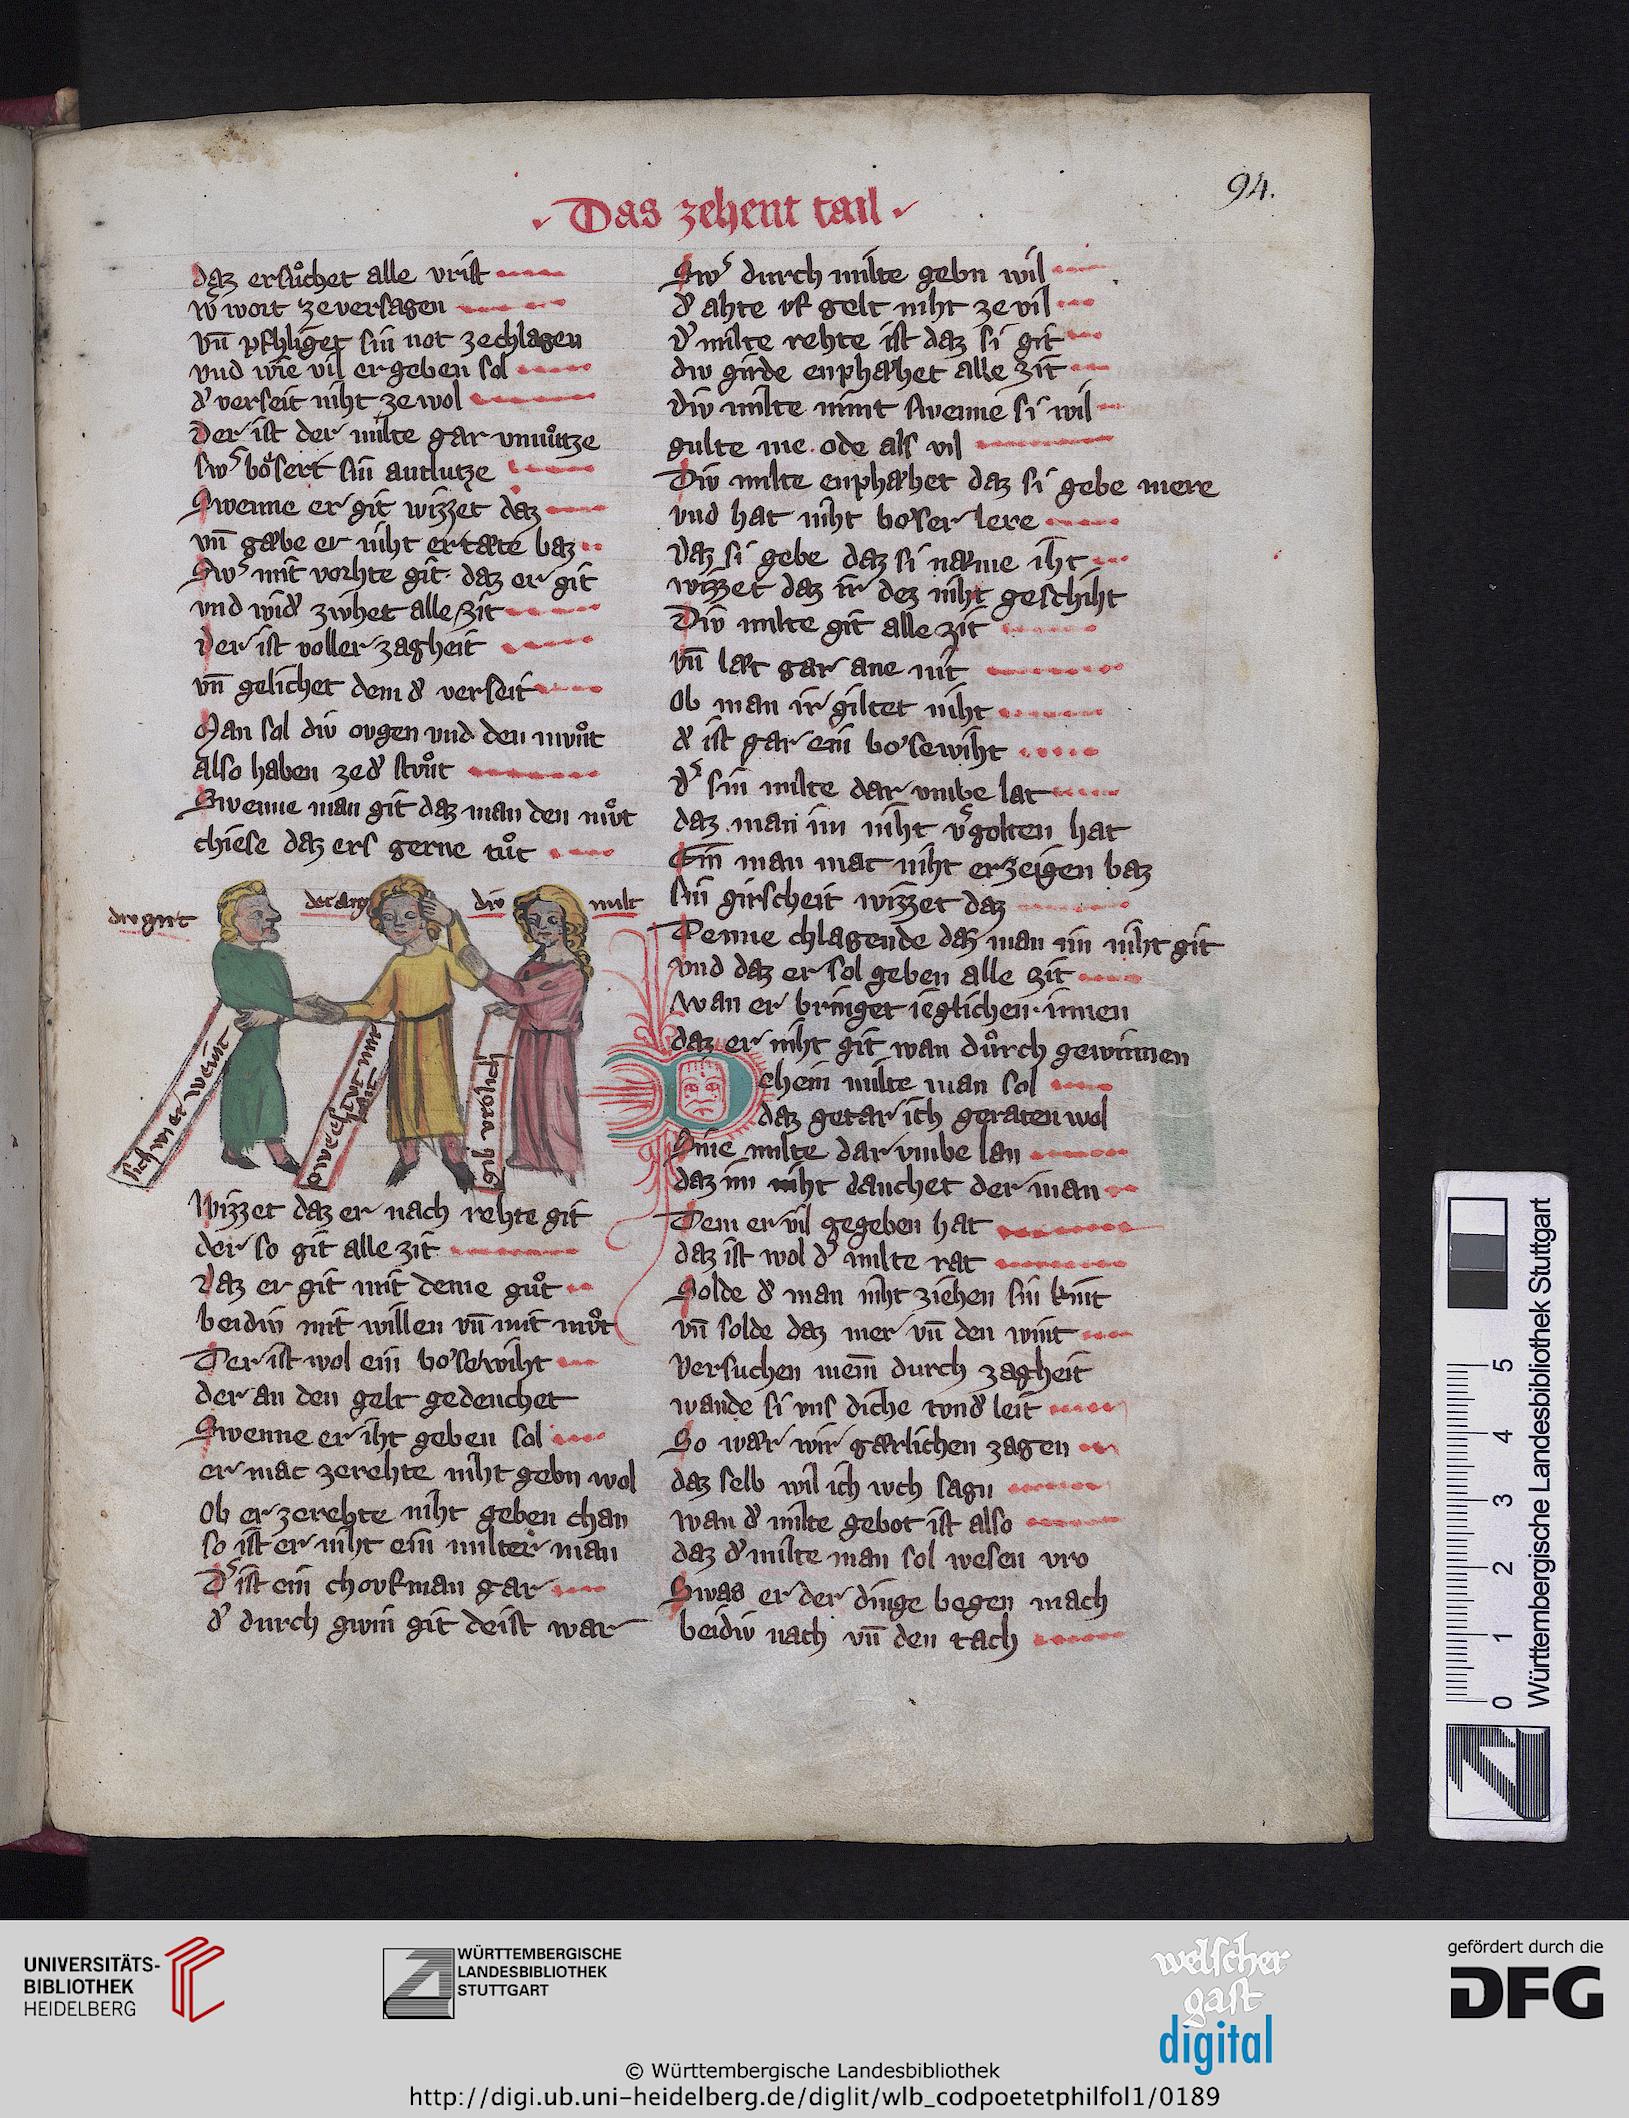 94.
Das zehent tail
daz ersuͦchet alle vrist
wͦ wort ze versagen
vn̄ pfhliget sin not ze chlagen
vnd wie vil er geben sol
dˀ verseit niht ze wol
Der ist der milte gar vnnuͦtze
swˢ boͤsert sin antlutze
Swenne er git wizzet daz
vn̄ gæbe er niht er tæte baz
Swˢ mit vorhte git daz er git
vnd widˀ ziuhet alle zit
der ist voller zagheit
vn̄ gelichet dem dˀ verseit
Man sol div ovgen vnd den mvͦt
also haben ze dˀ stvͦt
Swenne man git daz man den mvͦt
chiese daz ers gerne tuͦt
div girt
der arg
div milt
sich wi er weint
gib vrolich
Wizzet daz er nach rehte git
der so git alle zit
daz er git mit deme guͦt
beidiv mit willen vn̄ mit mvͦt
Der ist wol ein boͤsewiht
der an den gelt gedenchet
Swenne er iht geben sol
er mac ze rehte niht gebn wol
Ob er ze rehte niht geben chan
so ist er niht ein milter man
Dˢ ist ein chovfman gar
dˀ durch gwin git deist war
Swˢ durch milte gebn wil
dˀ ahte vf gelt niht ze vil
dˀ milte rehte ist daz si git
div girde enphæhet alle zit
div milte nimt swenne si wil
gulte me ode als vil
Div milte enphæhet daz si gebe mere
vnd hat niht boser lere
daz si gebe daz si næme iht
wizzet daz ir dez niht geschiht
Div milte git alle zit
vn̄ læt gar ane nit
Ob man ir giltet niht
dˀ ist gar ein bosewiht
dˢ sin milte dar vmbe lat
daz man im niht vˢgolten hat
Ein man mac niht erzeigen baz
sin girscheit wizzet daz
Denne chlagende daz man im niht git
vnd daz er sol geben alle zit
wan er bringet ieglichen innen
daz er niht git wan duͦrch gewinnen
Dehein milte man sol
daz getar ich geraten wol
Sine milte dar vmbe lan
daz im niht danchet der man
Dem er vil gegeben hat
daz ist wol dˀ milte rat
Solde dˀ man niht ziehen sin kint
vn̄ solde daz mer vn̄ den wint
versuchen niem̄ durch zagheit
wande si vns diche tvndˀ leit
So wær wir gærlichen zagen
daz selb wil ich iuch sagn
wan dˀ milte gebot ist also
daz dˀ milte man sol wesen vro
Swas er der dinge begen mach
beidiv nach vn̄ den tach
0 1 2 3 4 5
Württembergische Landesbibliothek Stuttgart
UNIVERSITÄTS-
BIBLIOTHEK
HEIDELBERG
WÜRTTEMBERGISCHE
LANDESBIBLIOTHEK
STUTTGART
welscher
gast
digital
gefördert durch die
DFG
© Württembergische Landesbibliothek
http://digi.ub.uni-heidelberg.de/diglit/wlb_codpoetetphilfol1/0189